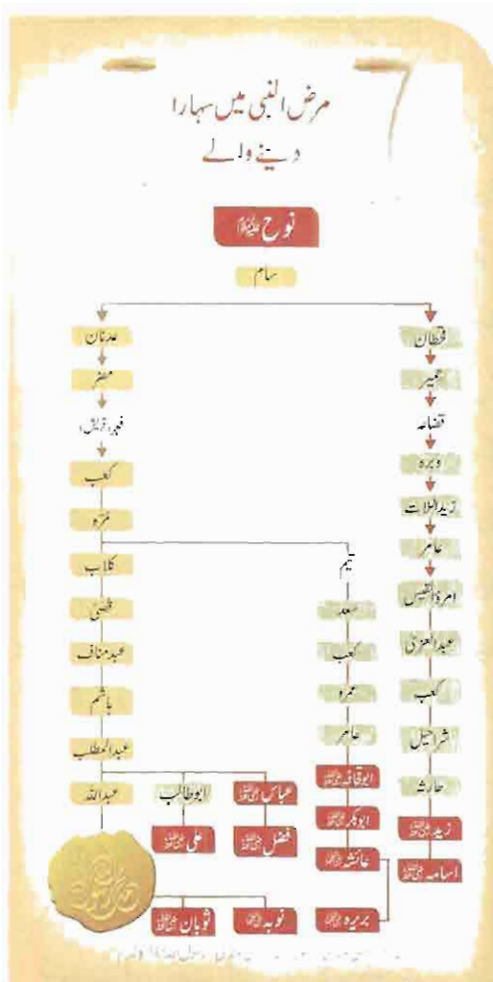 مرض النبی میں سہارا
دینے والے
نوح علیہ السلام
سام
قحطان
حمیر
قضاعہ
وبرہ
زید اللات
عامر
امرؤ القیس
عبد العزیٰ
کعب
شراحیل
حارثہ
زید رضی اللہ عنہ
اسامہ رضی اللہ عنہ
عدنان
مضر
فہر (قریش)
کعب
مُرّہ
تیم
سعد
کعب
عمرو
عامر
ابوقحافہ رضی اللہ عنہ
ابوبکر رضی اللہ عنہ
عائشہ رضی اللہ عنہا
بریرہ رضی اللہ عنہا
کلاب
قصَیّ
عبد مناف
ہاشم
عبد المطلب
عباس رضی اللہ عنہ
فضل رضی اللہ عنہ
ابوطالب
علی رضی اللہ عنہ
عبد اللہ
محمد رسول اللہ
نوبہ رضی اللہ عنہا
ثوبان رضی اللہ عنہ